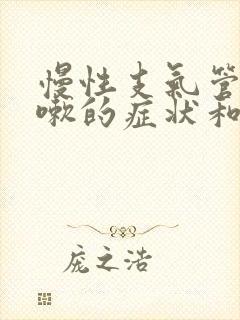 慢性支氣管
嗽的症狀和
庞之浩